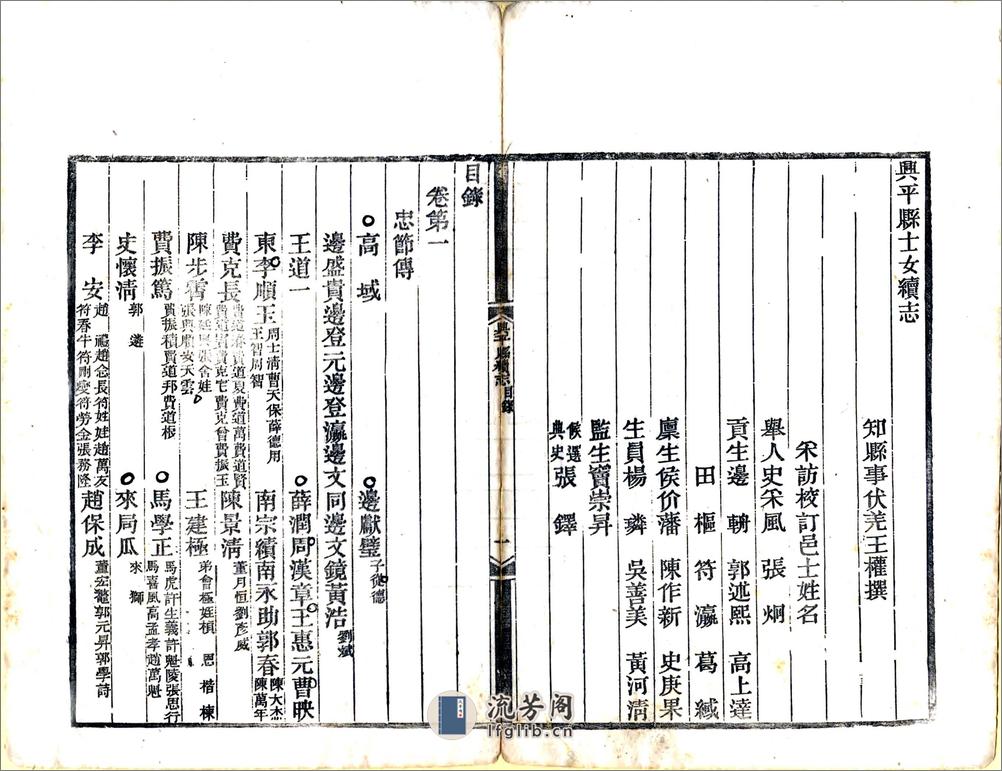 興平縣士女續志
知縣事伏羌王權撰
采訪校訂邑士姓名
舉人史采風 張炯
貢生邊 郭述熙 高上達
田樞 符瀛 葛
廩生侯价藩 陳作新 史庚果
生員楊 吳善美 黃河清
監生竇崇昇
候選典史張鐸
興平縣續志 目錄 一
目錄
卷第一
忠節傳
高域 邊獻璧 子德德
邊盛貴邊登元邊登瀛邊文同邊文鏡黃浩 劉斌
王道一 薛潤周漢章王惠元曹映
東李順王 周士清曹天保薛德用 王智周智 南宗續南永助郭春 陳大杰 陳萬年
費克長 費道春費道夏費道萬費道賢 費道 費克宅費克曾賈振玉 陳景清 董月恒劉彥威
陳步霄 陳廷 張含娃 張興 安天雲 王建極 弟會極姪楨 恩楷棟
賈振篤 賈振積賈道邦費道極 馬學正 馬虎許生義許魁陵張思行 馬喜風高孟孝趙萬魁
史懷清 郭 來局瓜 來獅
李安 趙 趙念長符姓娃趙萬友 符春牛符剛變符勞金張務隆 趙保成 董宏 郭元昇郭學詩
流芳阁
lfglib.cn